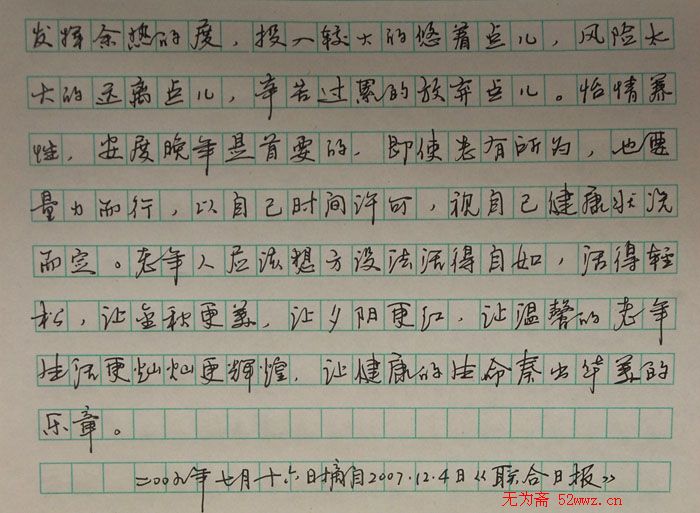 发挥余热的度，投入较大的悠着点儿，风险太
大的远离点儿，辛苦过累的放弃点儿。怡情养
性，安度晚年是首要的，即使老有所为，也要
量力而行，以自己时间许可，视自己健康状况
而定。老年人应该想方设法活得自如，活得轻
松，让金秋更美，让夕阳更红，让温馨的老年
生活更灿灿更辉煌，让健康的生命奏出华美的
乐章。
二00九年七月十六日摘自2007.12.4日《联合日报》
无为斋 52wwz.cn